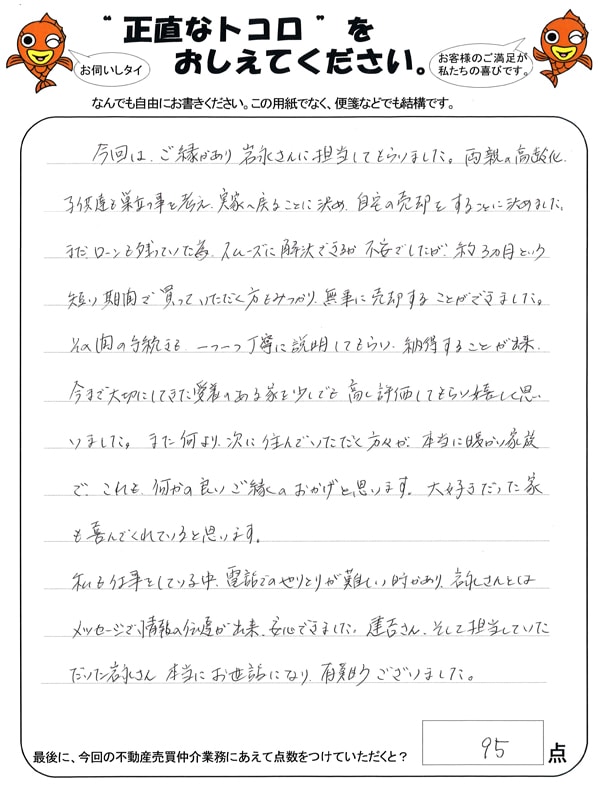 “正直なトコロ”を
おしえてください。
お伺いしタイ
お客様のご満足が
私たちの喜びです。
なんでも自由にお書きください。この用紙でなく、便箋などでも結構です。
今回は、ご縁があり岩永さんに担当してもらいました。両親の高齢化、
子供達も巣立つ事を考え、実家へ戻ることに決め、自宅の売却をすることに決めました。
まだローンも残っていた為、スムーズに解決できるか不安でしたが、約3カ月という
短い期間で買っていただく方もみつかり、無事に売却することができました。
その間の手続きも、一つ一つ丁寧に説明してもらい、納得することが出来、
今まで大切にしてきた愛着のある家を少しでも高く評価してもらい嬉しく思
いました。また何より、次に住んでいただく方々が、本当に暖かい家族
で、これも、何かの良いご縁のおかげと思います。大好きだった家
も喜んでくれていると思います。
私も仕事をしている中、電話でのやりとりが難しい時があり、岩永さんとは
メッセージで情報の伝達が出来、安心できました。建吉さん、そして担当していた
だいた岩永さん 本当にお世話になり、有難うございました。
最後に、今回の不動産売買仲介業務にあえて点数をつけていただくと？
95 点